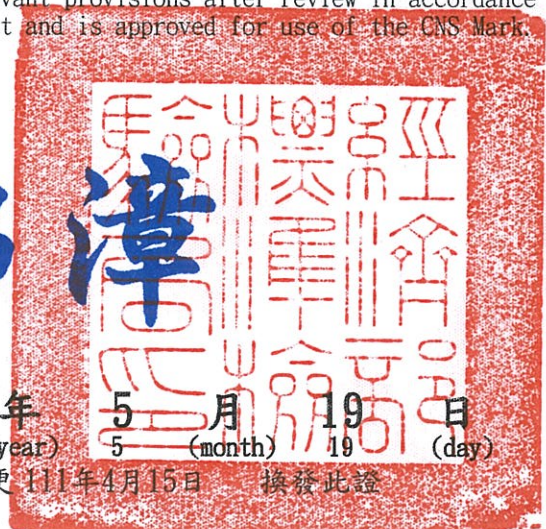 evant provisions after review in accordance
t and is approved for use of the CNS Mark.
經濟部
標準檢
驗局印
漳
年 5 月 19 日
year) 5 (month) 19 (day)
更 111年4月15日 換發此證